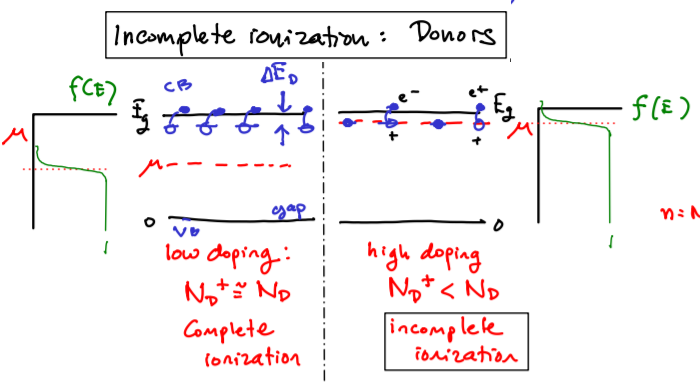 Incomplete ionization: Donors
f(E)
μ
Eg
CB
ΔED
μ
0
VB
gap
low doping:
ND+ ≅ ND
Complete
ionization
e-
e+
Eg
+
+
0
high doping
ND+ < ND
incomplete
ionization
μ
f(E)
n = N